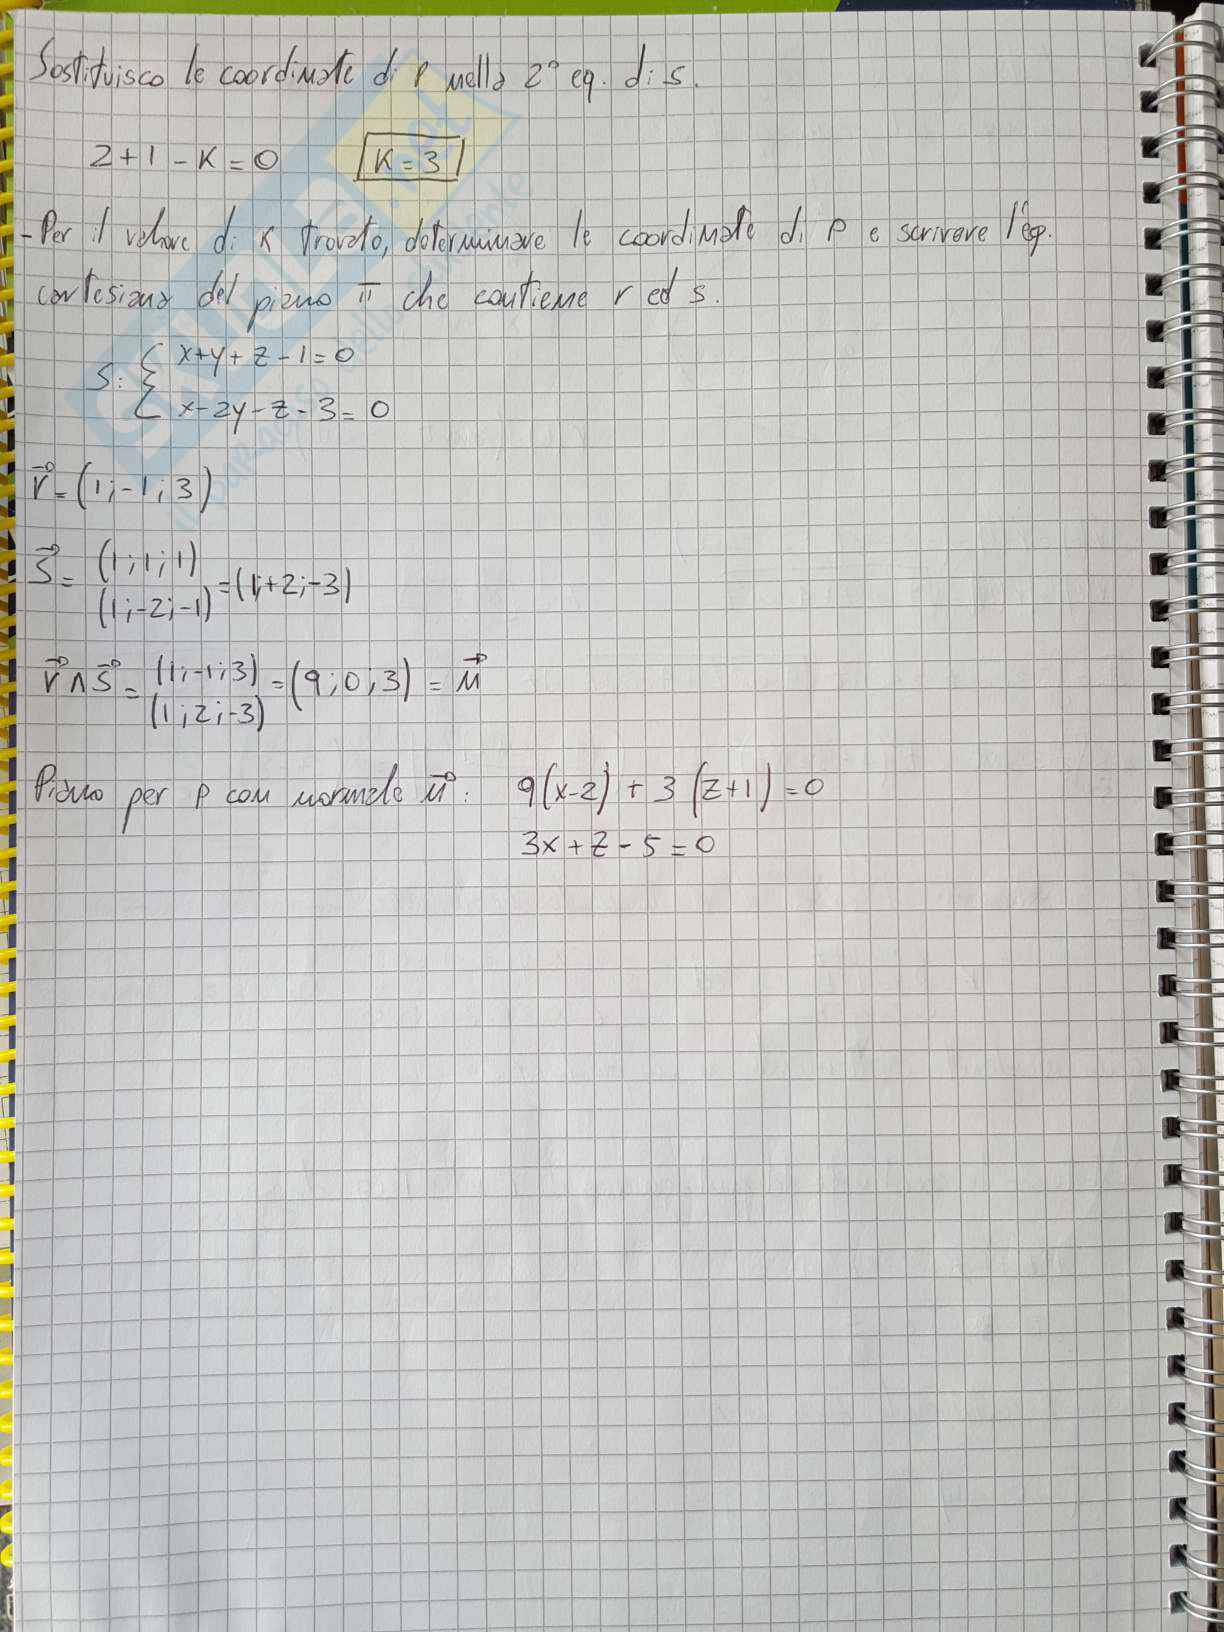 Sostituisco le coordinate di P nella 2° eq. di s.
2+1-K=0 K=3
-Per il valore di K trovato, determinare le coordinate di P e scrivere l'eq.
cartesiana del piano π che contiene r ed s.
s: { x+y+z-1=0
x-2y-z-3=0
r⃗=(1;-1;3)
s⃗= (1;1;1)
(1;-2;-1) =(1;+2;-3)
r⃗∧s⃗= (1;-1;3)
(1;2;-3) =(9;0;3) = n⃗
Piano per P con normale n⃗: 9(x-2)+3(z+1)=0
3x+z-5=0
SKUOLA.net